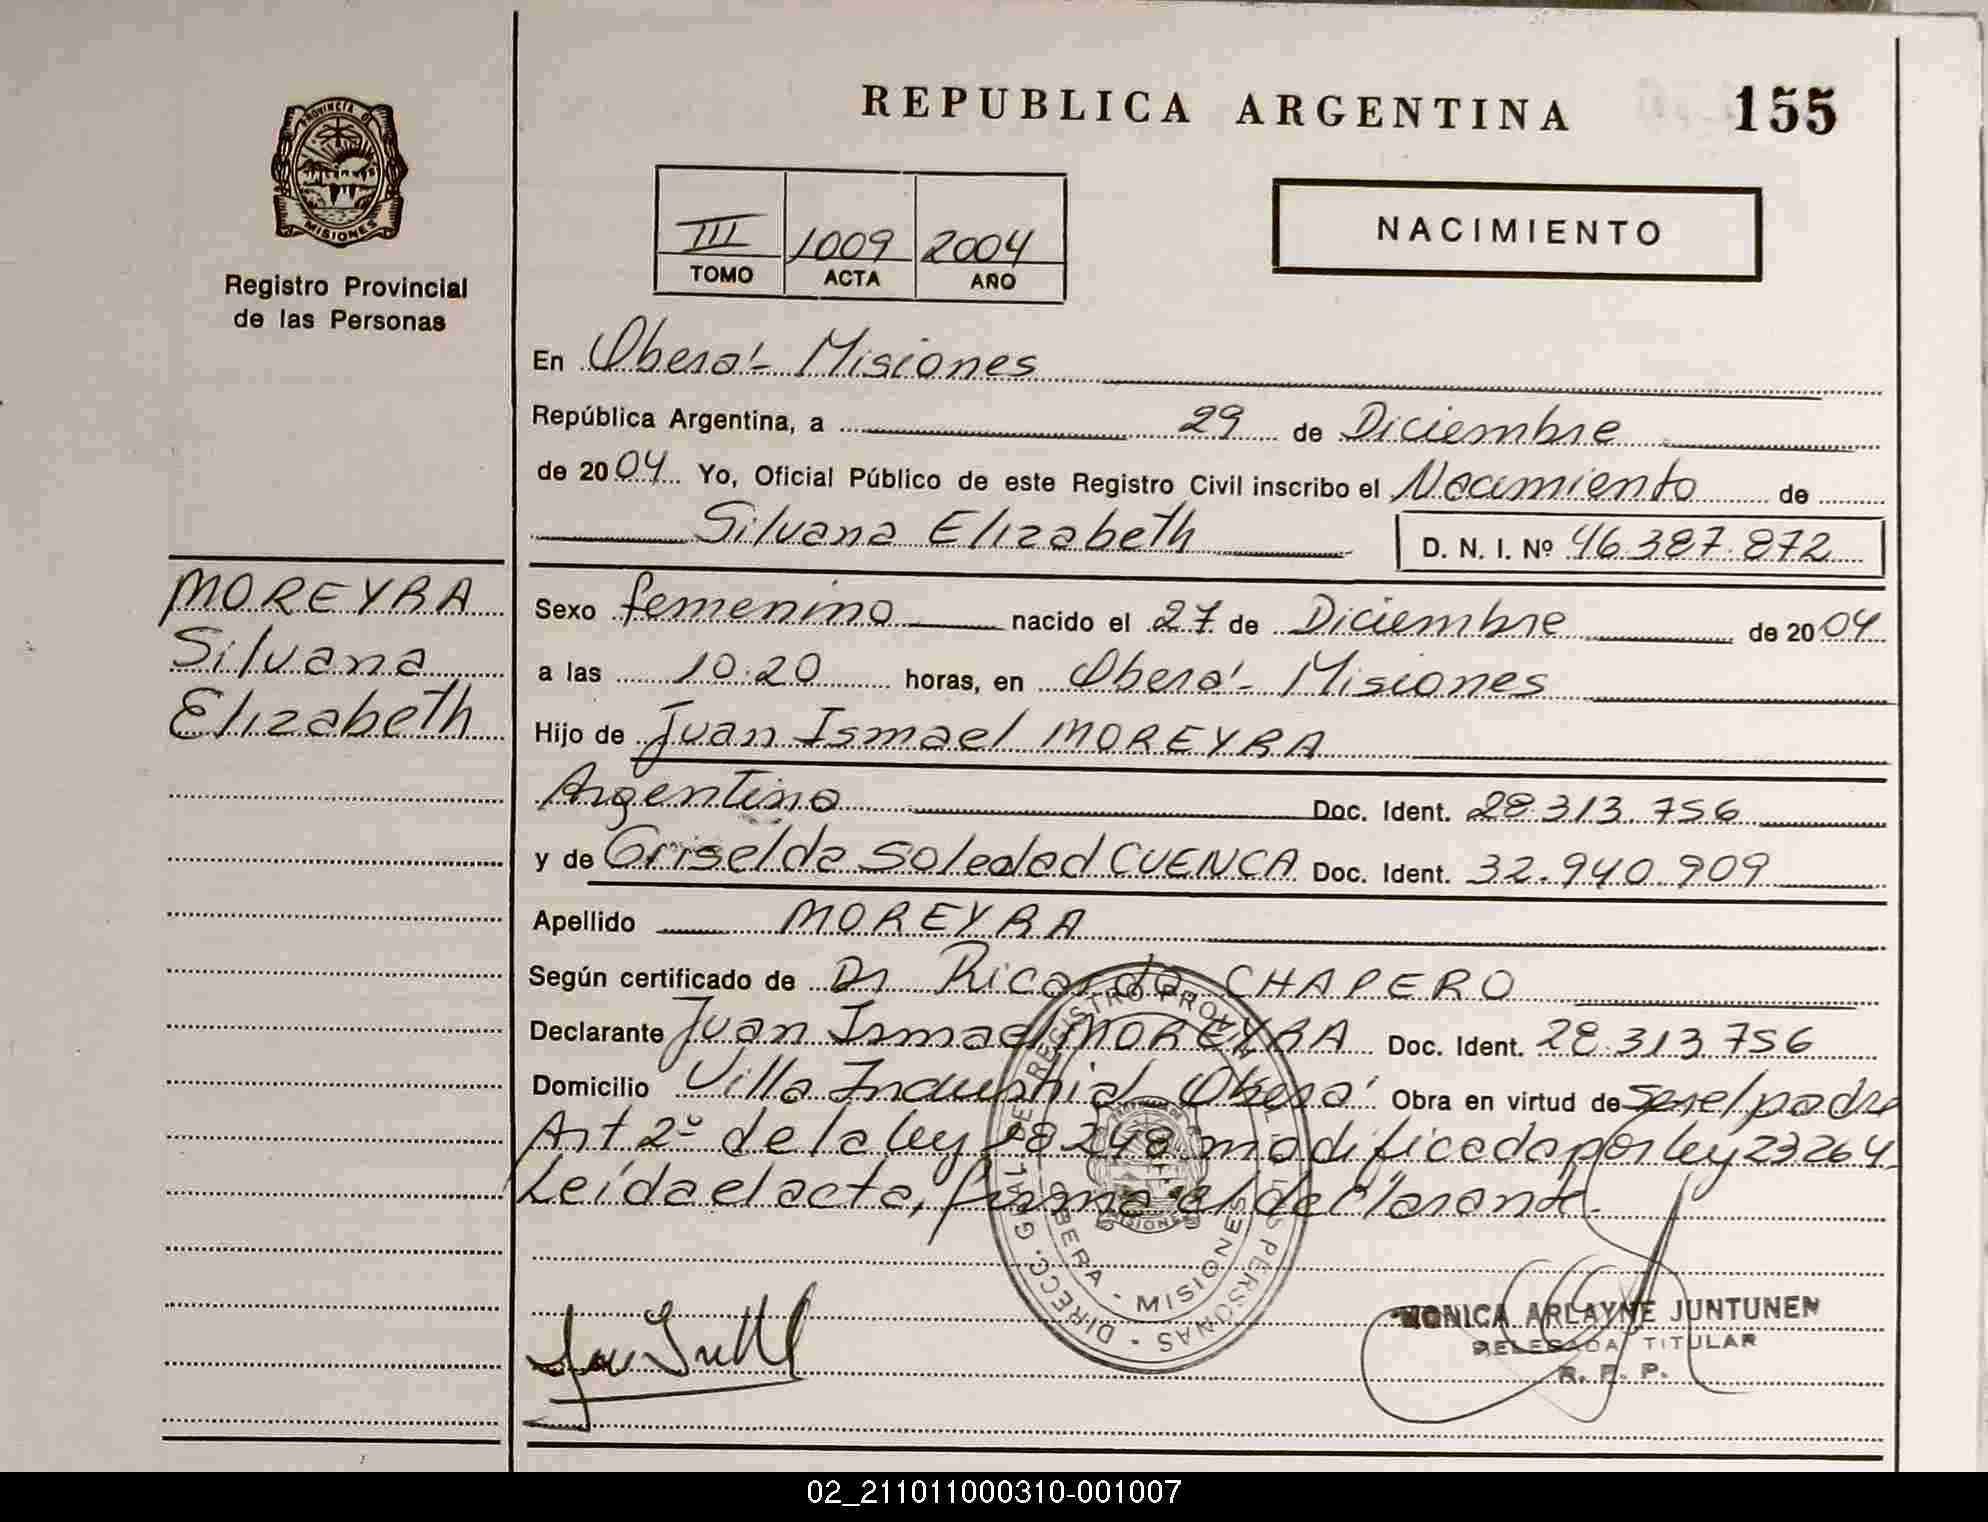 REPUBLICA ARGENTINA 155
PROVINCIA DE
MISIONES
Registro Provincial
de las Personas
III 1009 2004
TOMO ACTA AÑO
NACIMIENTO
En Oberá - Misiones
República Argentina, a 29 de Diciembre
de 2004 Yo, Oficial Público de este Registro Civil inscribo el Nacimiento de
Silvana Elizabeth D. N. I. Nº 46.387.872
MOREYRA
Silvana
Elizabeth
Sexo femenino nacido el 27 de Diciembre de 2004
a las 10:20 horas, en Oberá - Misiones
Hijo de Juan Ismael MOREYRA
Argentino Doc. Ident. 28.313.756
y de Griselda Soledad CUENCA Doc. Ident. 32.940.909
Apellido MOREYRA
Según certificado de Dr Ricardo CHAPERO
Declarante Juan Ismael MOREYRA Doc. Ident. 28.313.756
Domicilio Villa Industrial Oberá Obra en virtud de ser el padre
Art 2º de la ley 18248 modificada por ley 23264-
Leída el acta, firma el declarante.
DIRECC. GRAL. DEL REGISTRO PROVINCIAL DE LAS PERSONAS
OBERA - MISIONES
MONICA ARLAYNE JUNTUNEN
DELEGADA TITULAR
R. P. P.
02_211011000310-001007